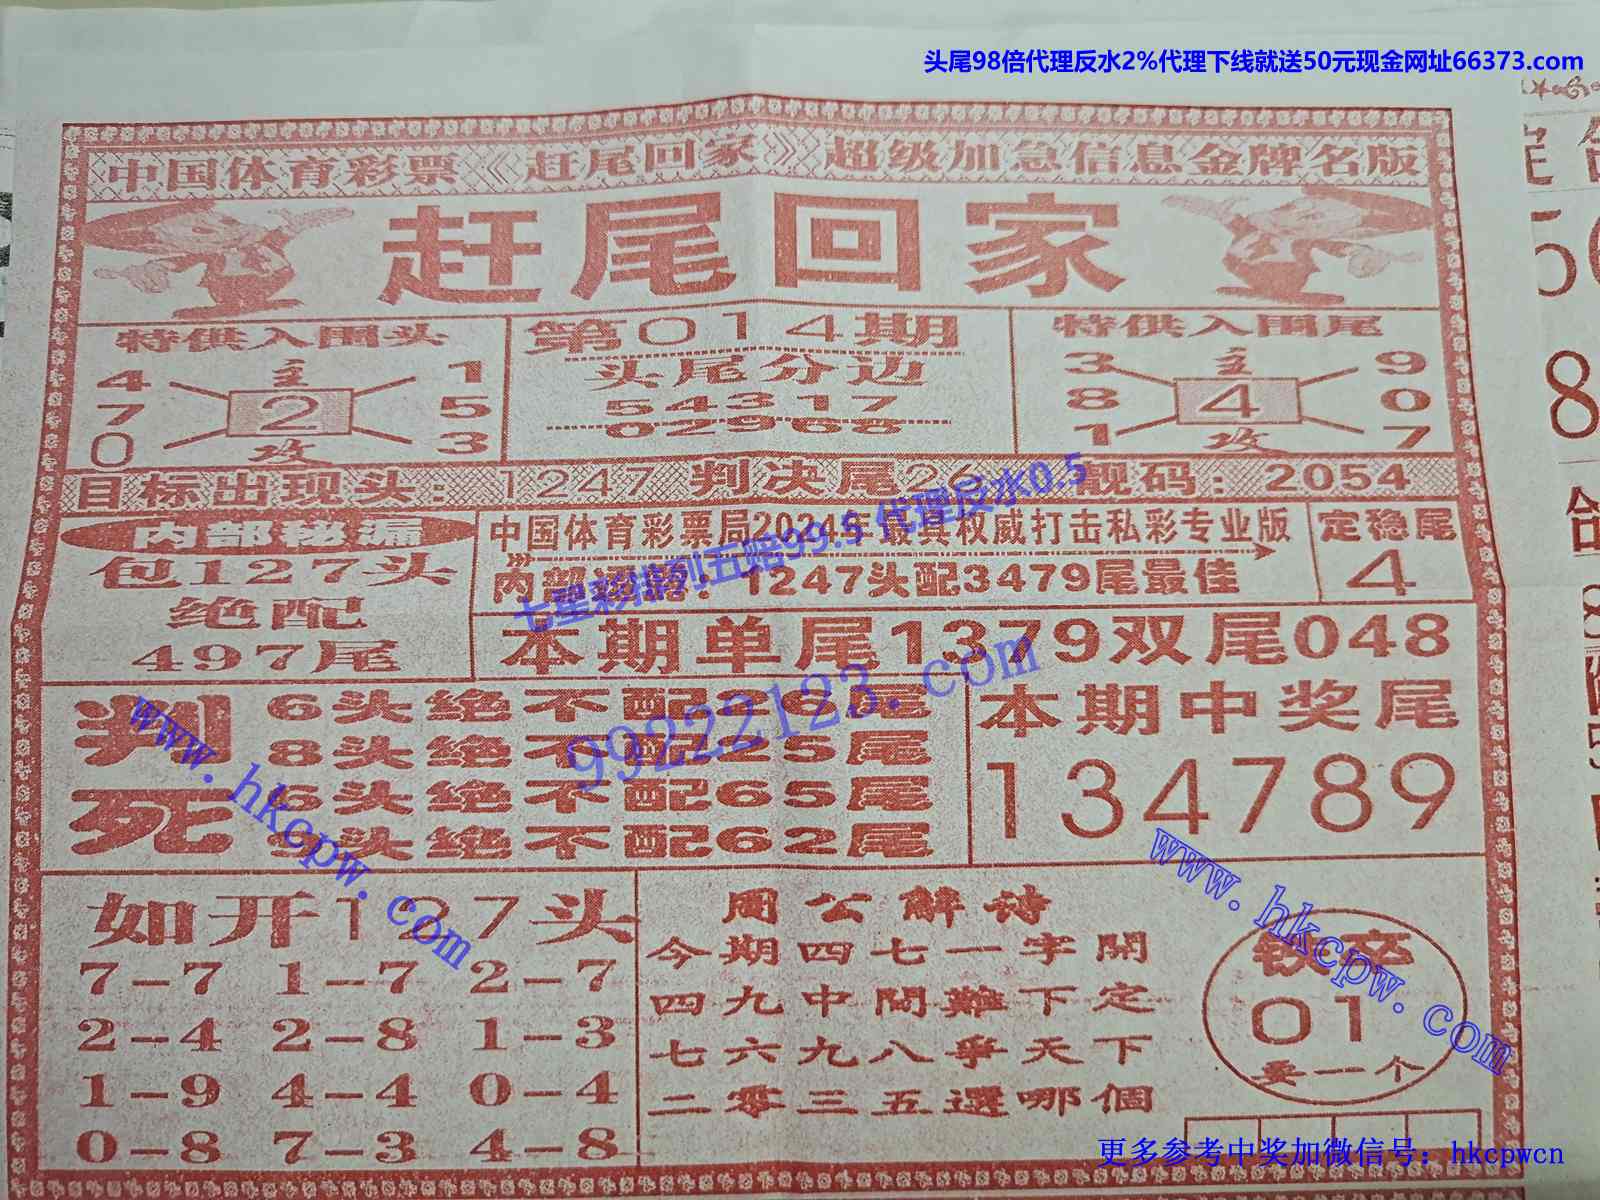 头尾98倍代理反水2%代理下线就送50元现金网址66373.com
中国体育彩票《赶尾回家》超级加急信息金牌名版
赶尾回家
特供入围头
4 主 1
7 2 5
0 攻 3
第014期
头尾分边
54317
02968
特供入围尾
3 主 9
8 4 0
1 攻 7
目标出现头：1247 判决尾26 靓码：2054
内部秘漏
包127头
绝配
497尾
中国体育彩票局2024年最具权威打击私彩专业版
内部运转：1247头配3479尾最佳
定稳尾
4
七星彩排列五赔99.5 代理反水0.5
本期单尾1379双尾048
99222123.com
判死
6头绝不配26尾
8头绝不配25尾
头绝不配65尾
头绝不配62尾
www.hkcpw.com
本期中奖尾
134789
www.hkcpw.com
如开127头
7-7 1-7 2-7
2-4 2-8 1-3
1-9 4-4 0-4
0-8 7-3 4-8
周公解诗
今期四七一字開
四九中間難下定
七六九八爭天下
二零三五選哪個
01
卖一个
更多参考中奖加微信号：hkcpwcn
定
56
8